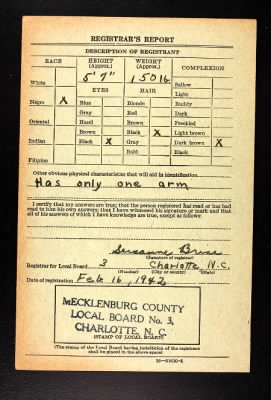 REGISTRAR'S REPORT
DESCRIPTION OF REGISTRANT
RACE HEIGHT (Approx.) WEIGHT (Approx.) COMPLEXION
5' 7" 150 lb
White Sallow
EYES HAIR Light
Negro X Blue Blonde Ruddy
Gray Red Dark
Oriental Hazel Brown Freckled
Brown Black X Light brown
Indian Black X Gray Dark brown X
Bald Black
Filipino
Other obvious physical characteristics that will aid in identification
Has only one arm
I certify that my answers are true; that the person registered has read or has had
read to him his own answers; that I have witnessed his signature or mark and that
all of his answers of which I have knowledge are true, except as follows:
(Signature of registrar)
Registrar for Local Board 3 Charlotte N.C.
(Number) (City or county) (State)
Date of registration Feb 16, 1942
MECKLENBURG COUNTY
LOCAL BOARD No. 3,
CHARLOTTE, N. C.
(STAMP OF LOCAL BOARD)
(The stamp of the Local Board having jurisdiction of the registrant
shall be placed in the above space)